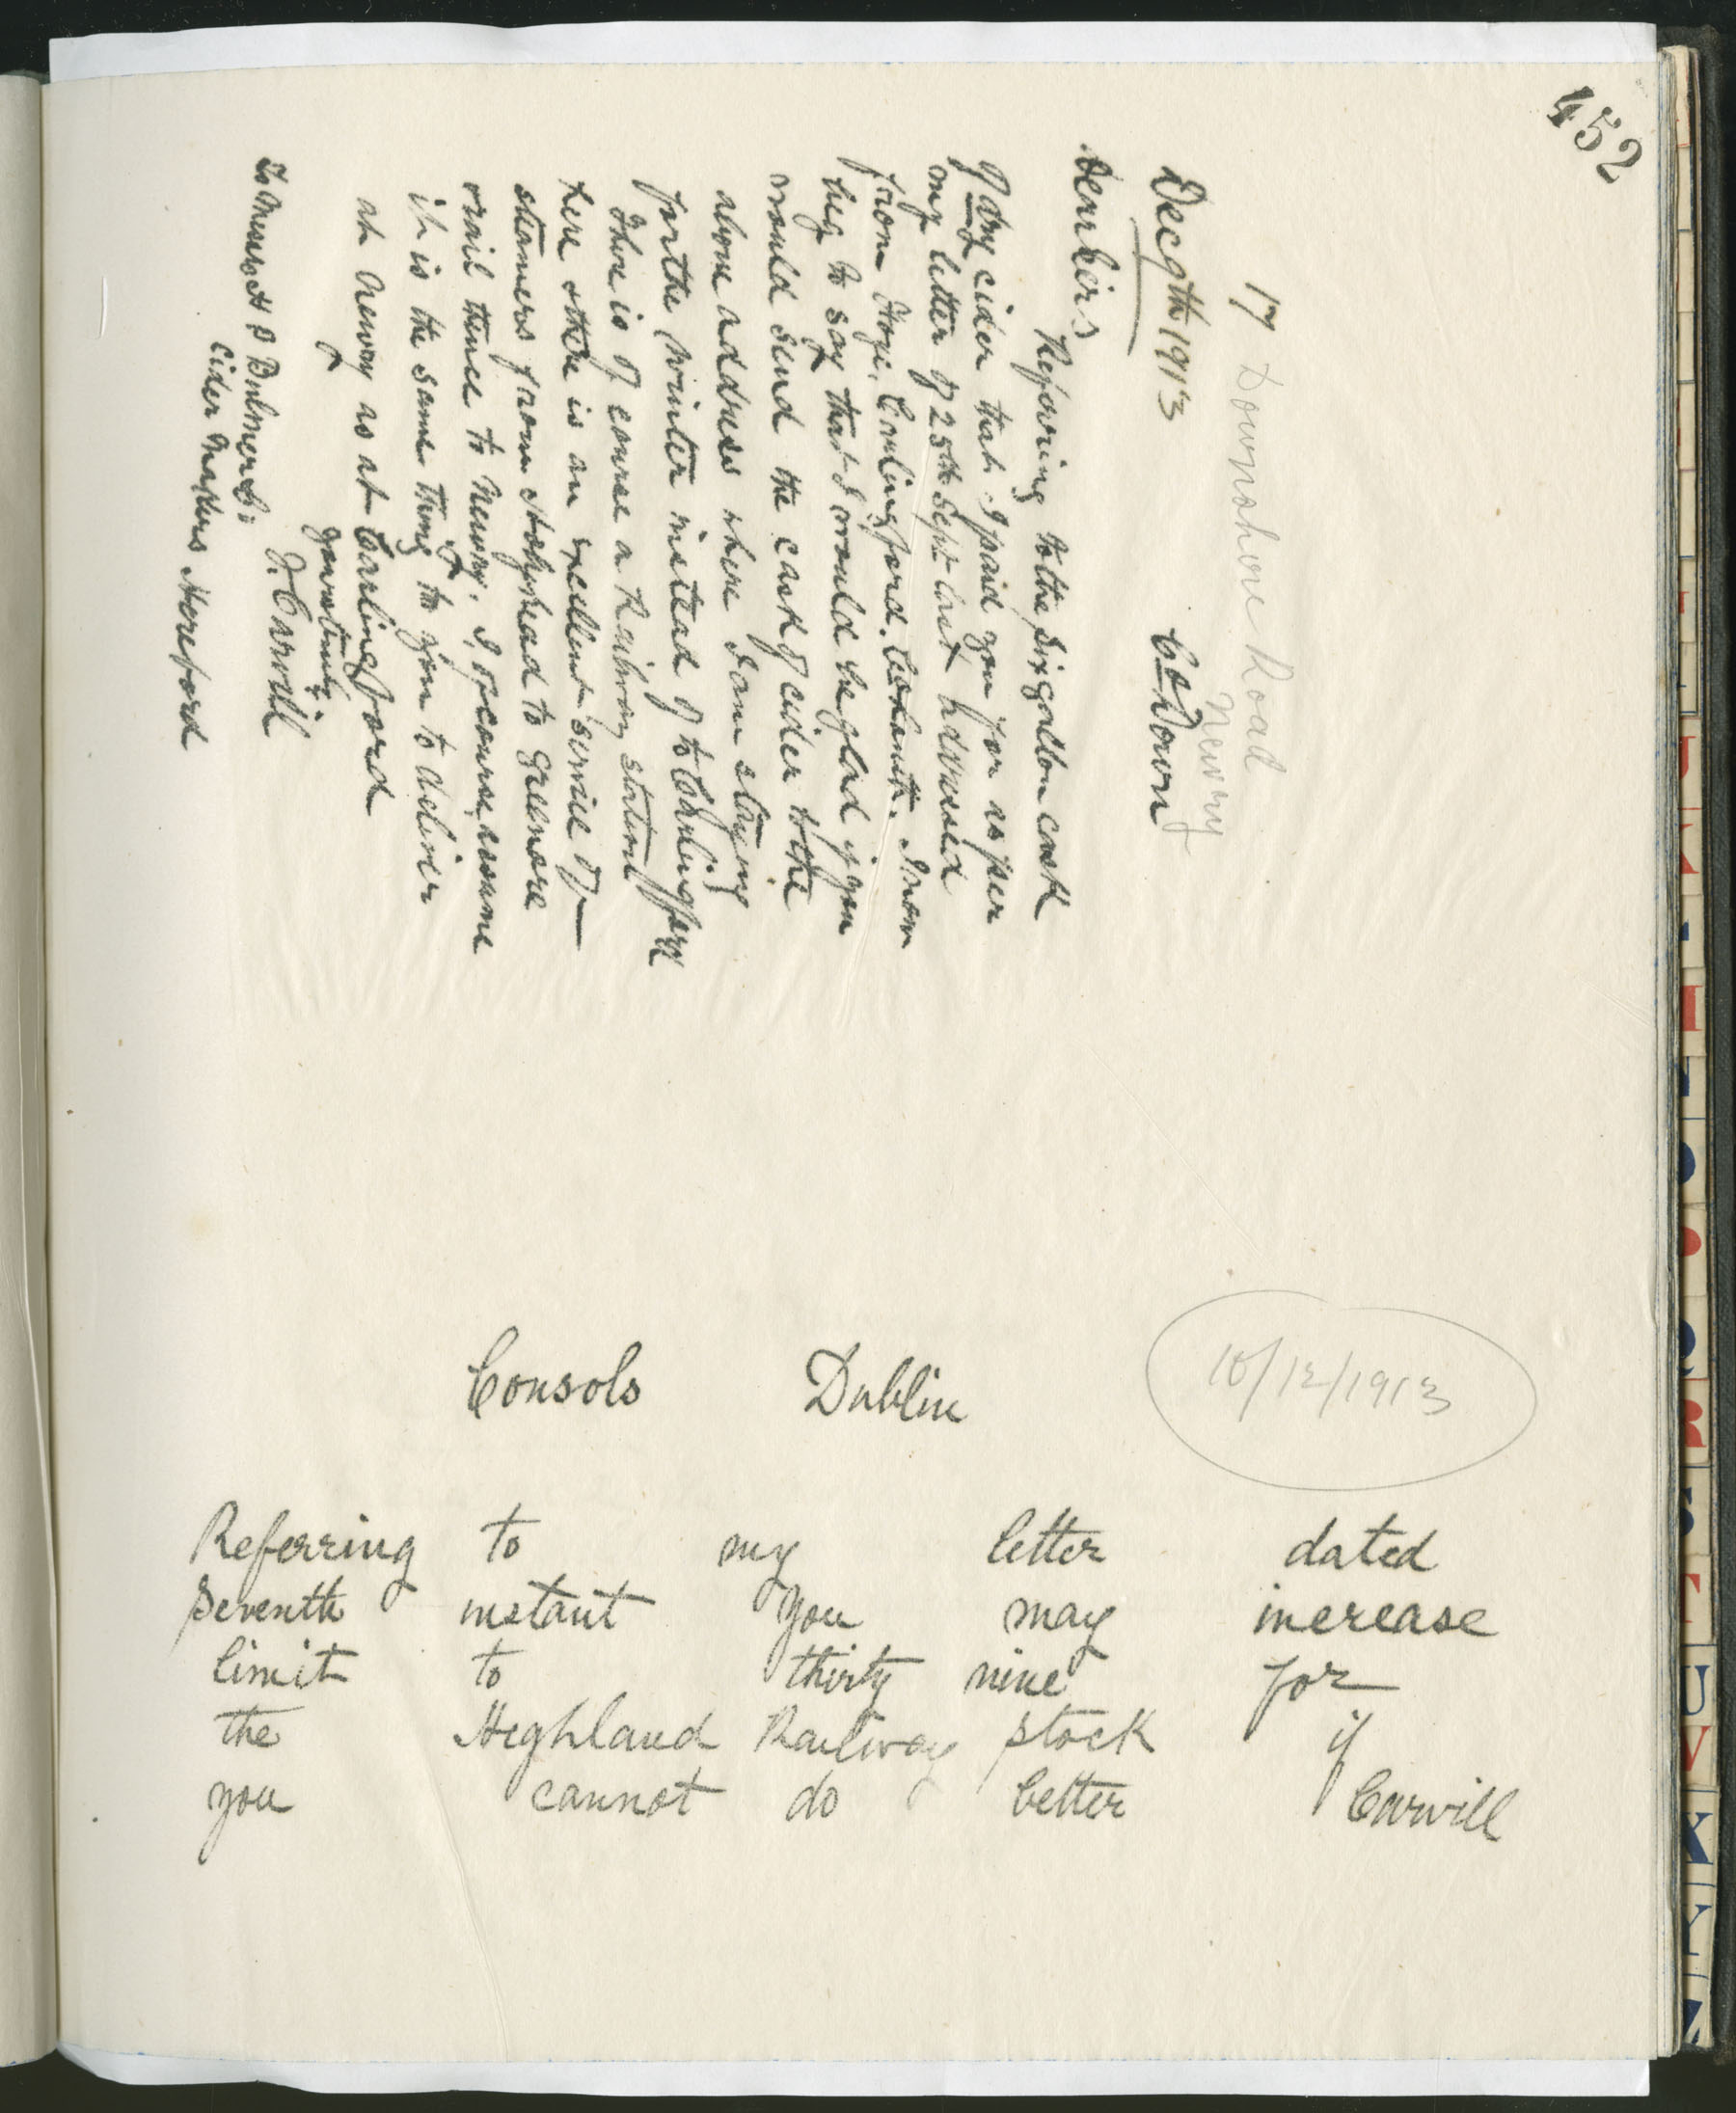 452
17 Downshire Road
Newry
Dec 9th 1913 Co Down
Dear Sirs
Referring to the six gallon cask
of dry cider that I paid you for as per
my letter of 25th Sept last addressed
from Carlingford. Co Louth. I now
beg to say that I would be glad if you
would send the cask of cider to the
above address where I am staying
for the winter instead of to Carlingford
There is of course a Railway station
here & there is an excellent service of
steamers from Holyhead to Greenore
& rail thence to Newry. I, of course, assume
it is the same thing to you to deliver
at Newry as at Carlingford
Yours truly
J. Carvill
To Messrs H P Bulmer & Co
Cider Makers Hereford
Consols Dublin 10/12/1913
Referring to my letter dated
seventh instant you may increase
limit to thirty nine for
the Highland Railway stock if
you cannot do better Carvill